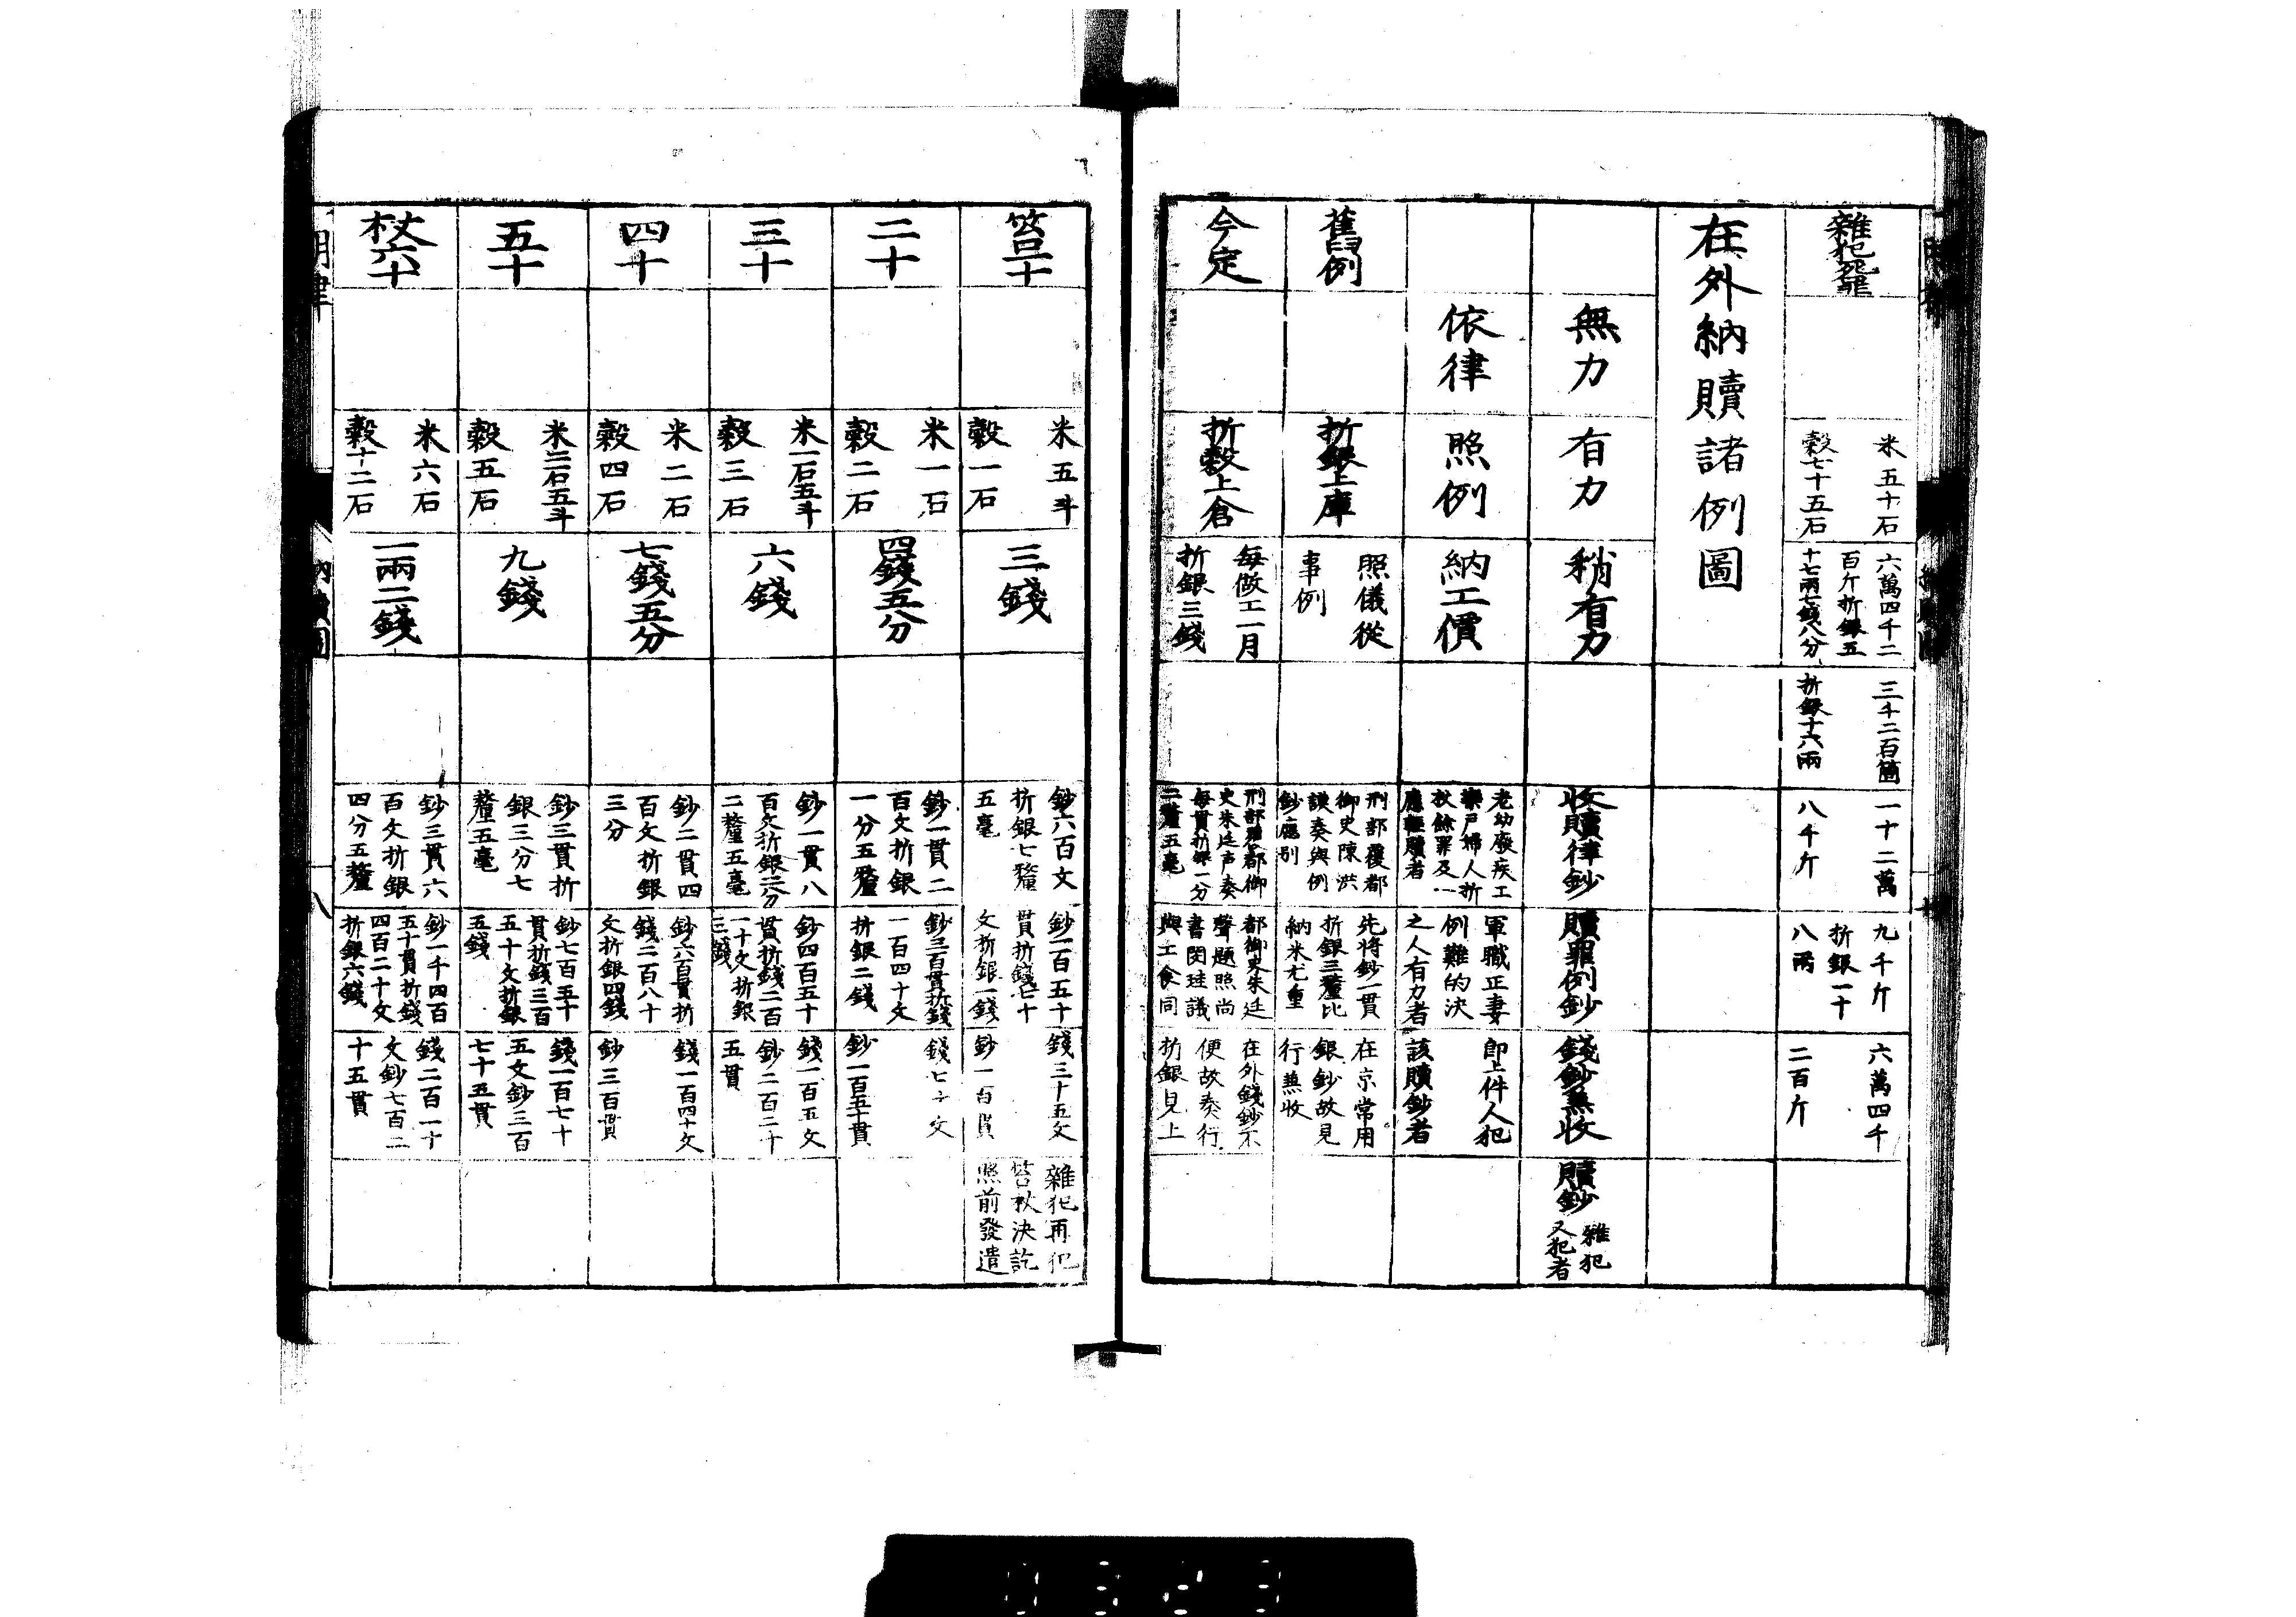 雜犯死罪
米五十石
穀七十五石
六萬四千二
百斤折銀五
十七兩七錢八分
三千二百箇
折銀十六兩
一十二萬
八千斤
九千斤
折銀一十
八兩
六萬四千
二百斤
在外納贖諸例圖
無力
有力
稍有力
收贖律鈔
贖罪例鈔
錢鈔兼收
贖鈔
雜犯
又犯者
依律
照例
納工價
老幼廢疾工
樂戶婦人折
杖餘罪及一
應輕贖者
軍職正妻
例難的決
之人有力者
即上件人犯
該贖鈔者
舊例
折銀上庫
照儀從
事例
刑部覆都
御史陳洪
謨奏與例
鈔應別
先將鈔一貫
折銀三釐比
納米尤重
在京常用
銀鈔故見
行兼收
今定
折穀上倉
每做工一月
折銀三錢
刑部題都御
史朱廷声奏
每貫折銀一分
二釐五毫
都御史朱廷
聲題照尚
書閔珪議
與工食同
在外錢鈔不
便故奏行
折銀見上
笞一十
米五斗
穀一石
三錢
鈔六百文
折銀七釐
五毫
鈔一百五十
貫折錢七十
文折銀一錢
錢三十五文
鈔一百貫
雜犯再犯
笞杖決訖
照前發遣
二十
米一石
穀二石
四錢五分
鈔一貫二
百文折銀
一分五釐
鈔三百貫折錢
一百四十文
折銀二錢
錢七十文
鈔一百五十貫
三十
米一石五斗
穀三石
六錢
鈔一貫八
百文折銀二分
二釐五毫
鈔四百五十
貫折錢二百
一十文折銀
三錢
錢一百五文
鈔二百二十
五貫
四十
米二石
穀四石
七錢五分
鈔二貫四
百文折銀
三分
鈔六百貫折
錢二百八十
文折銀四錢
錢一百四十文
鈔三百貫
五十
米二石五斗
穀五石
九錢
鈔三貫折
銀三分七
釐五毫
鈔七百五十
貫折錢三百
五十文折銀
五錢
錢一百七十
五文鈔三百
七十五貫
杖六十
米六石
穀十二石
一兩二錢
鈔三貫六
百文折銀
四分五釐
鈔一千四百
五十貫折錢
四百二十文
折銀六錢
錢二百一十
文鈔七百二
十五貫